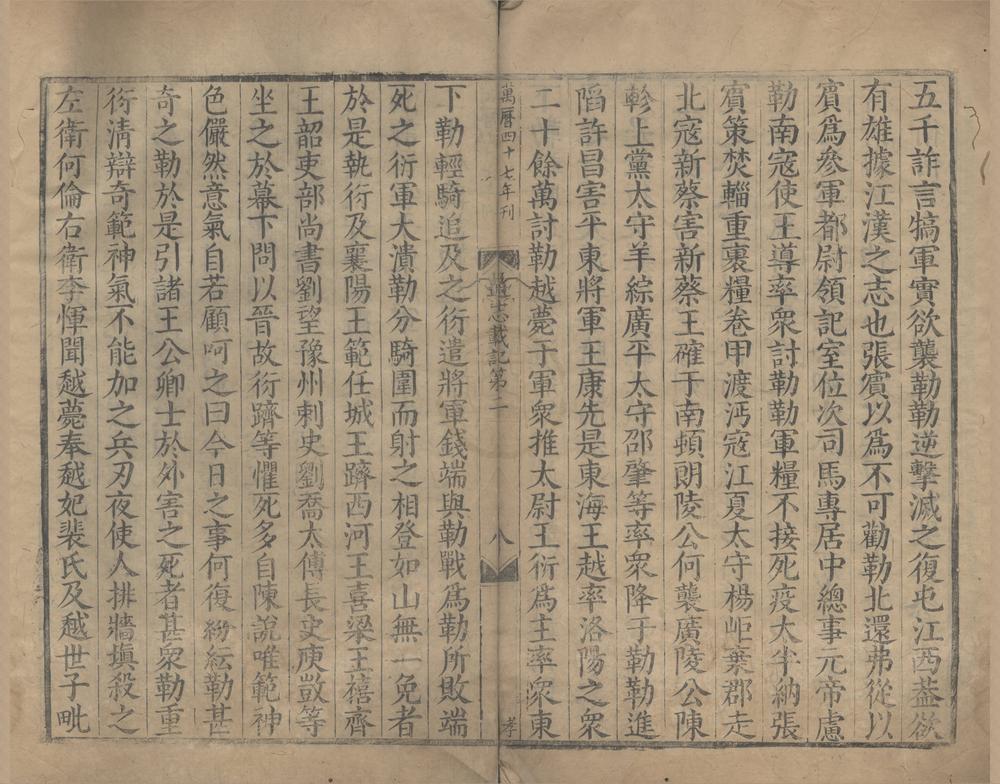 五千詐言犒軍實欲襲勒勒逆擊滅之復屯江西葢欲
有雄據江漢之志也張賓以爲不可勸勒北還弗從以
賓爲參軍都尉領記室位次司馬專居中總事元帝慮
勒南寇使王導率衆討勒勒軍糧不接死疫太半納張
賓策焚輜重裹糧卷甲渡沔寇江夏太守楊岠棄郡走
北寇新蔡害新蔡王確于南頓朗陵公何襲廣陵公陳
軫上黨太守羊綜廣平太守邵肇等率衆降于勒勒進
陷許昌害平東將軍王康先是東海王越率洛陽之衆
二十餘萬討勒越薨于軍衆推太尉王衍爲主率衆東
萬曆四十七年刊
載記第二
八
孝
下勒輕騎追及之衍遣將軍錢端與勒戰爲勒所敗端
死之衍軍大潰勒分騎圍而射之相登如山無一免者
於是執衍及襄陽王範任城王躋西河王喜梁王禧齊
王韶吏部尚書劉望豫州刺史劉喬太傅長史庾敳等
坐之於幕下問以晉故衍躋等懼死多自陳說唯範神
色儼然意氣自若顧呵之曰今日之事何復紛紜勒甚
奇之勒於是引諸王公卿士於外害之死者甚衆勒重
衍清辯奇範神氣不能加之兵刃夜使人排牆塡殺之
左衛何倫右衛李惲聞越薨奉越妃裴氏及越世子毗